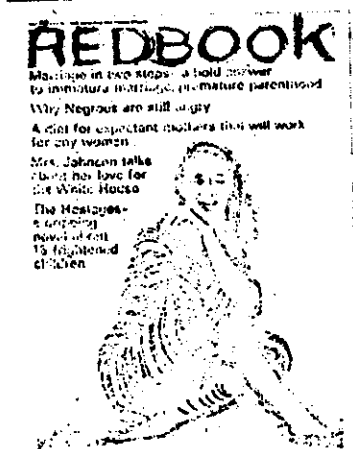 REDBOOK
Marriage in two steps - a bold answer
to immature marriage, premature parenthood
Why Negroes are still angry
A diet for expectant mothers that will work
for any women
Mrs. Johnson talks
about her love for
the White House
The Hostages-
a gripping
novel about
13 frightened
children